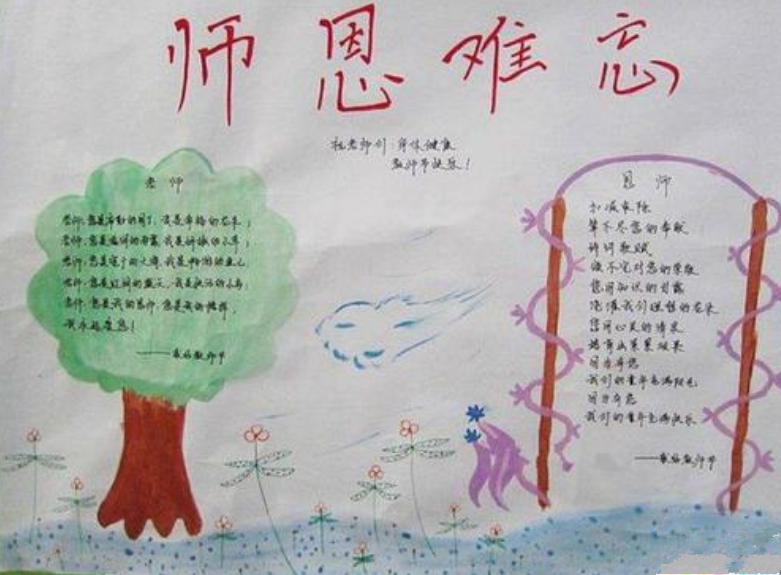 师恩难忘
祝老师们:身体健康
教师节快乐!
老师
老师,您是辛勤的园丁,我是幸福的花朵;
老师,您是滋润的雨露,我是娇嫩的小草;
老师,您是宽广的大海,我是畅游的鱼儿;
老师,您是红润的蓝天,我是快活的小鸟;
老师,您是我的恩师,您是我的
我永远爱您!
——献给教师节
恩师
加减乘除
算不尽您的奉献
诗词歌赋
颂不完对您的崇敬
您用知识的甘露
浇灌我们理想的花朵
您用心灵的清泉
培育出累累硕果
因为有您
我们的童年充满阳光
因为有您
我们的童年充满快乐
——献给教师节